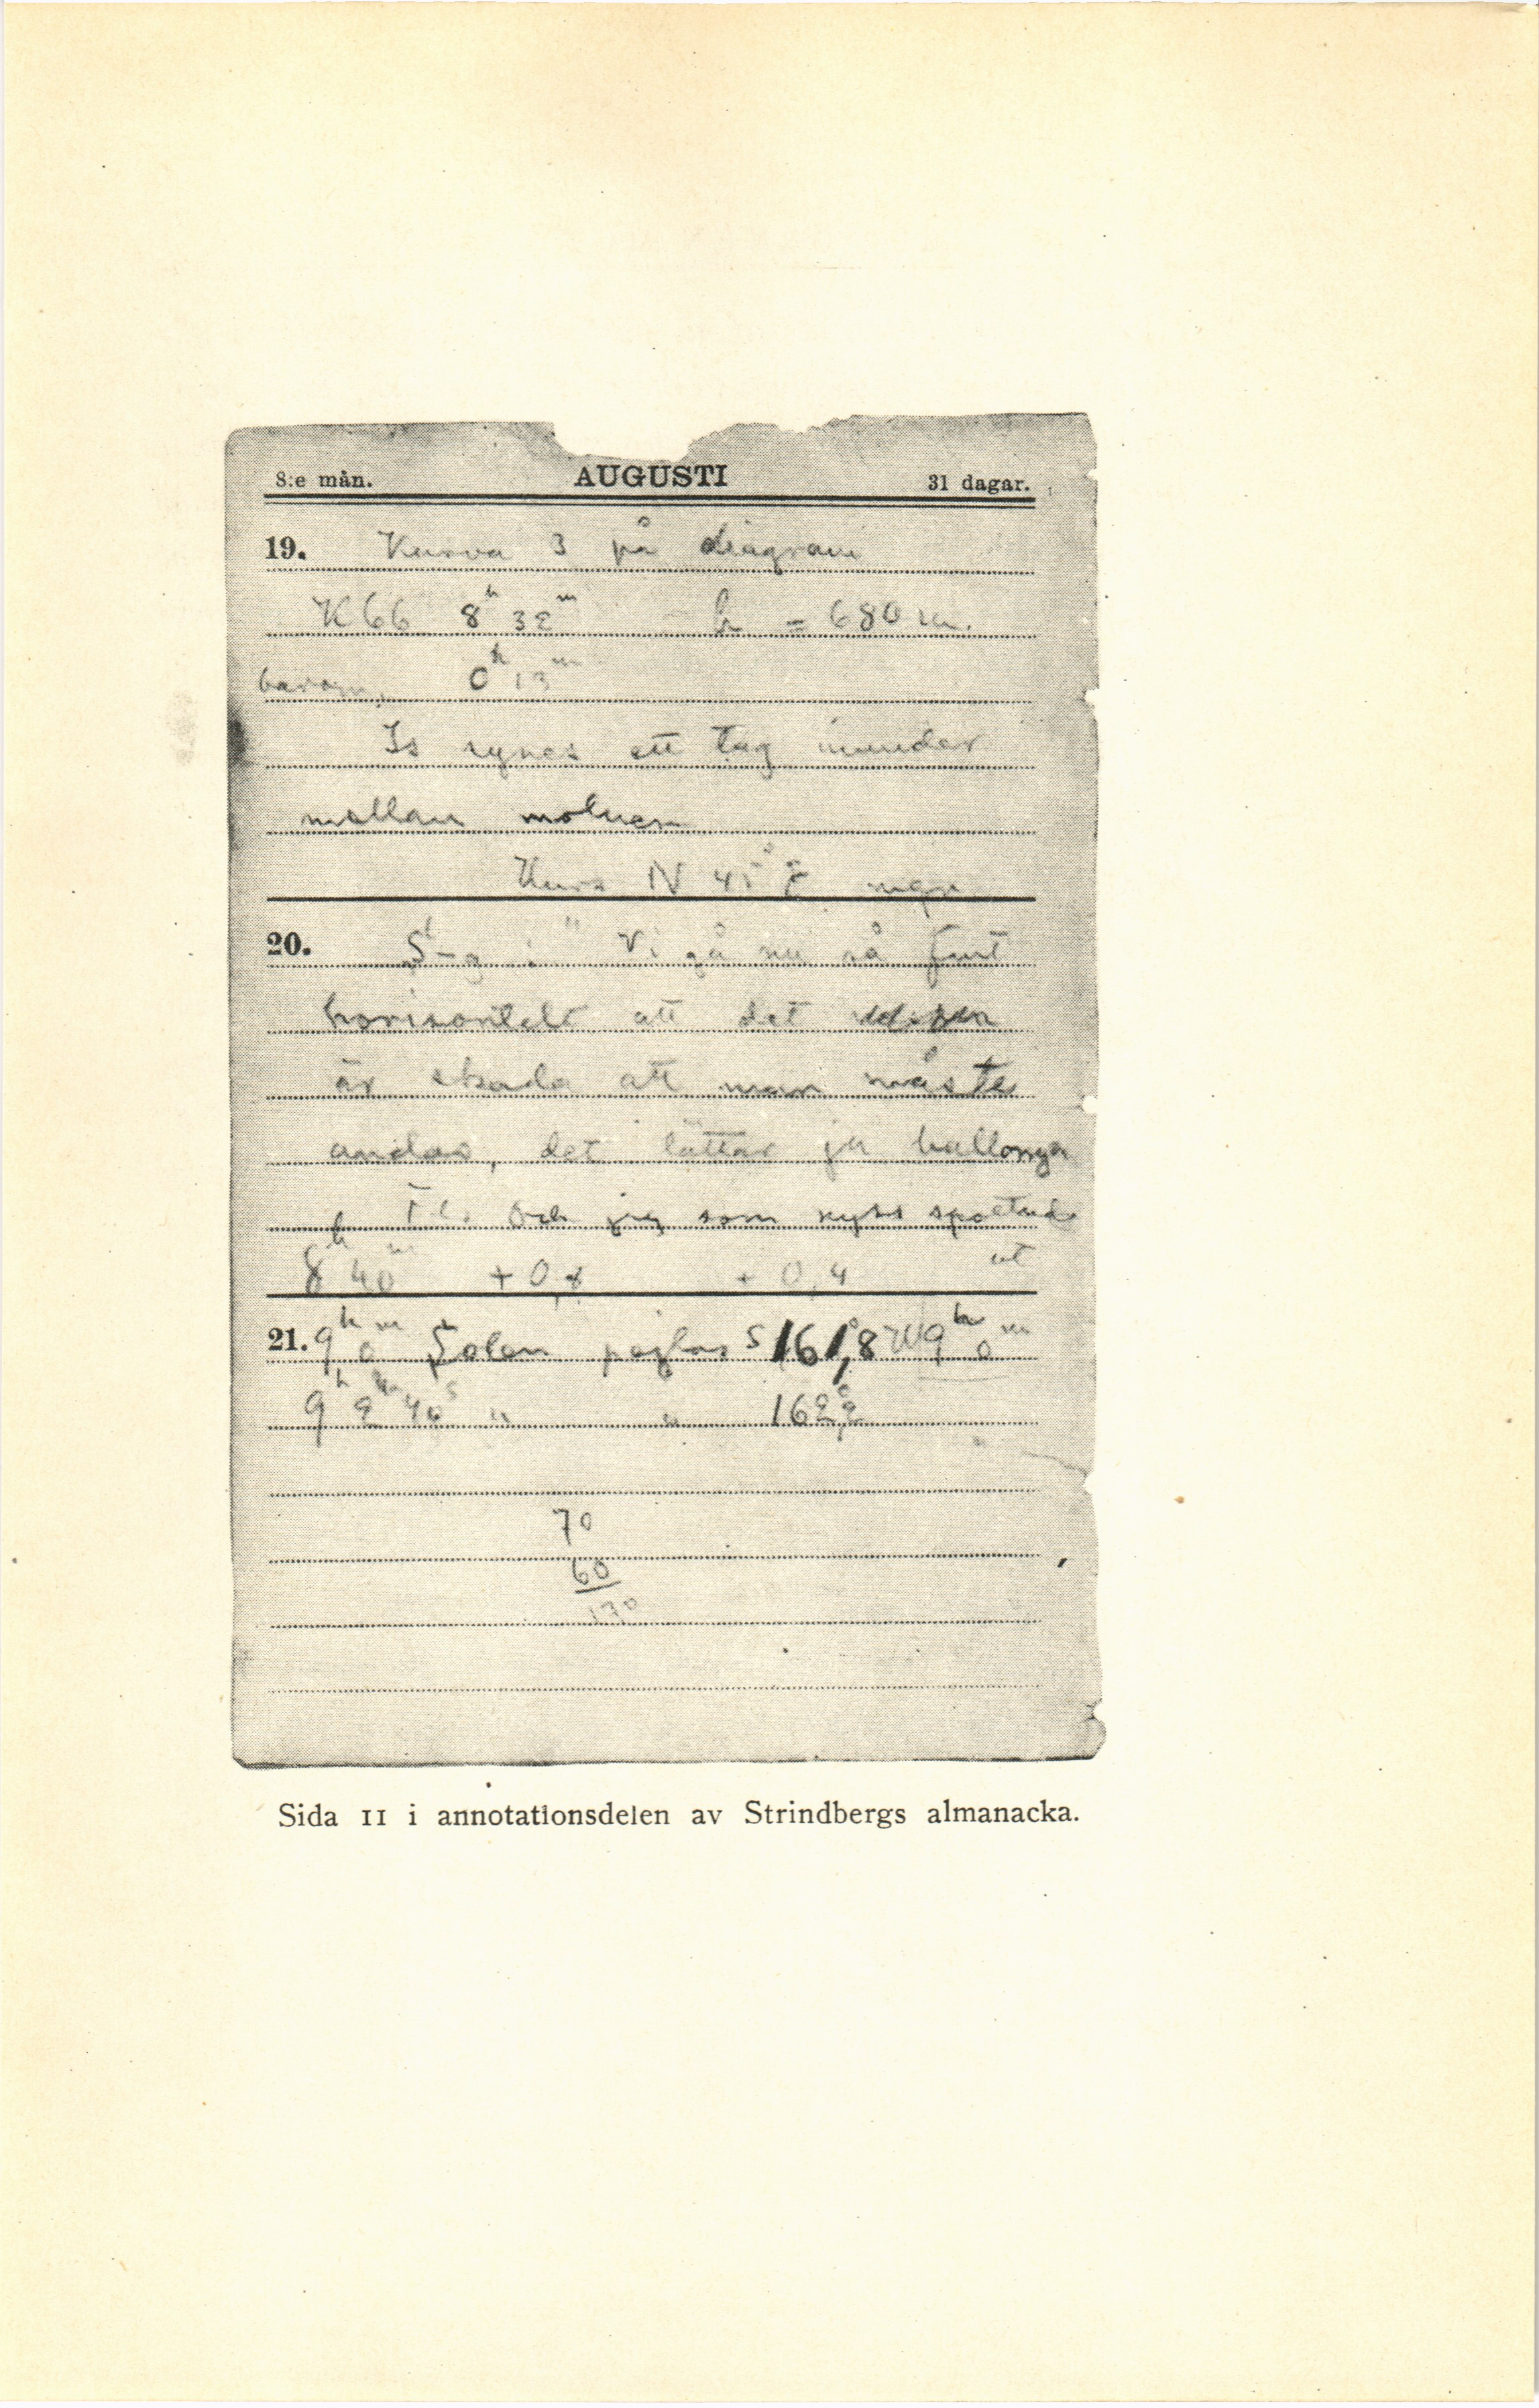 8:e mån. AUGUSTI 31 dagar.
19. Kurva 3 på diagram
K66 8h 32m h = 680 m.
barom. 0h 13m
Is synes ett tag inunder
mellan molnen
Kurs N 45° E magn
20. S-g: " Vi gå nu så fint
horisontelt att det
är skada att man måste
andas, det lättar ju ballongen
Och jag som nyss spottade
ut
8h 40m +0,8 + 0,4
21. 9h 0m Solen pejlas S 161°,8 9h 0m
9h 2m 40s " " 162°,2
70
60
130
Sida 11 i annotationsdelen av Strindbergs almanacka.